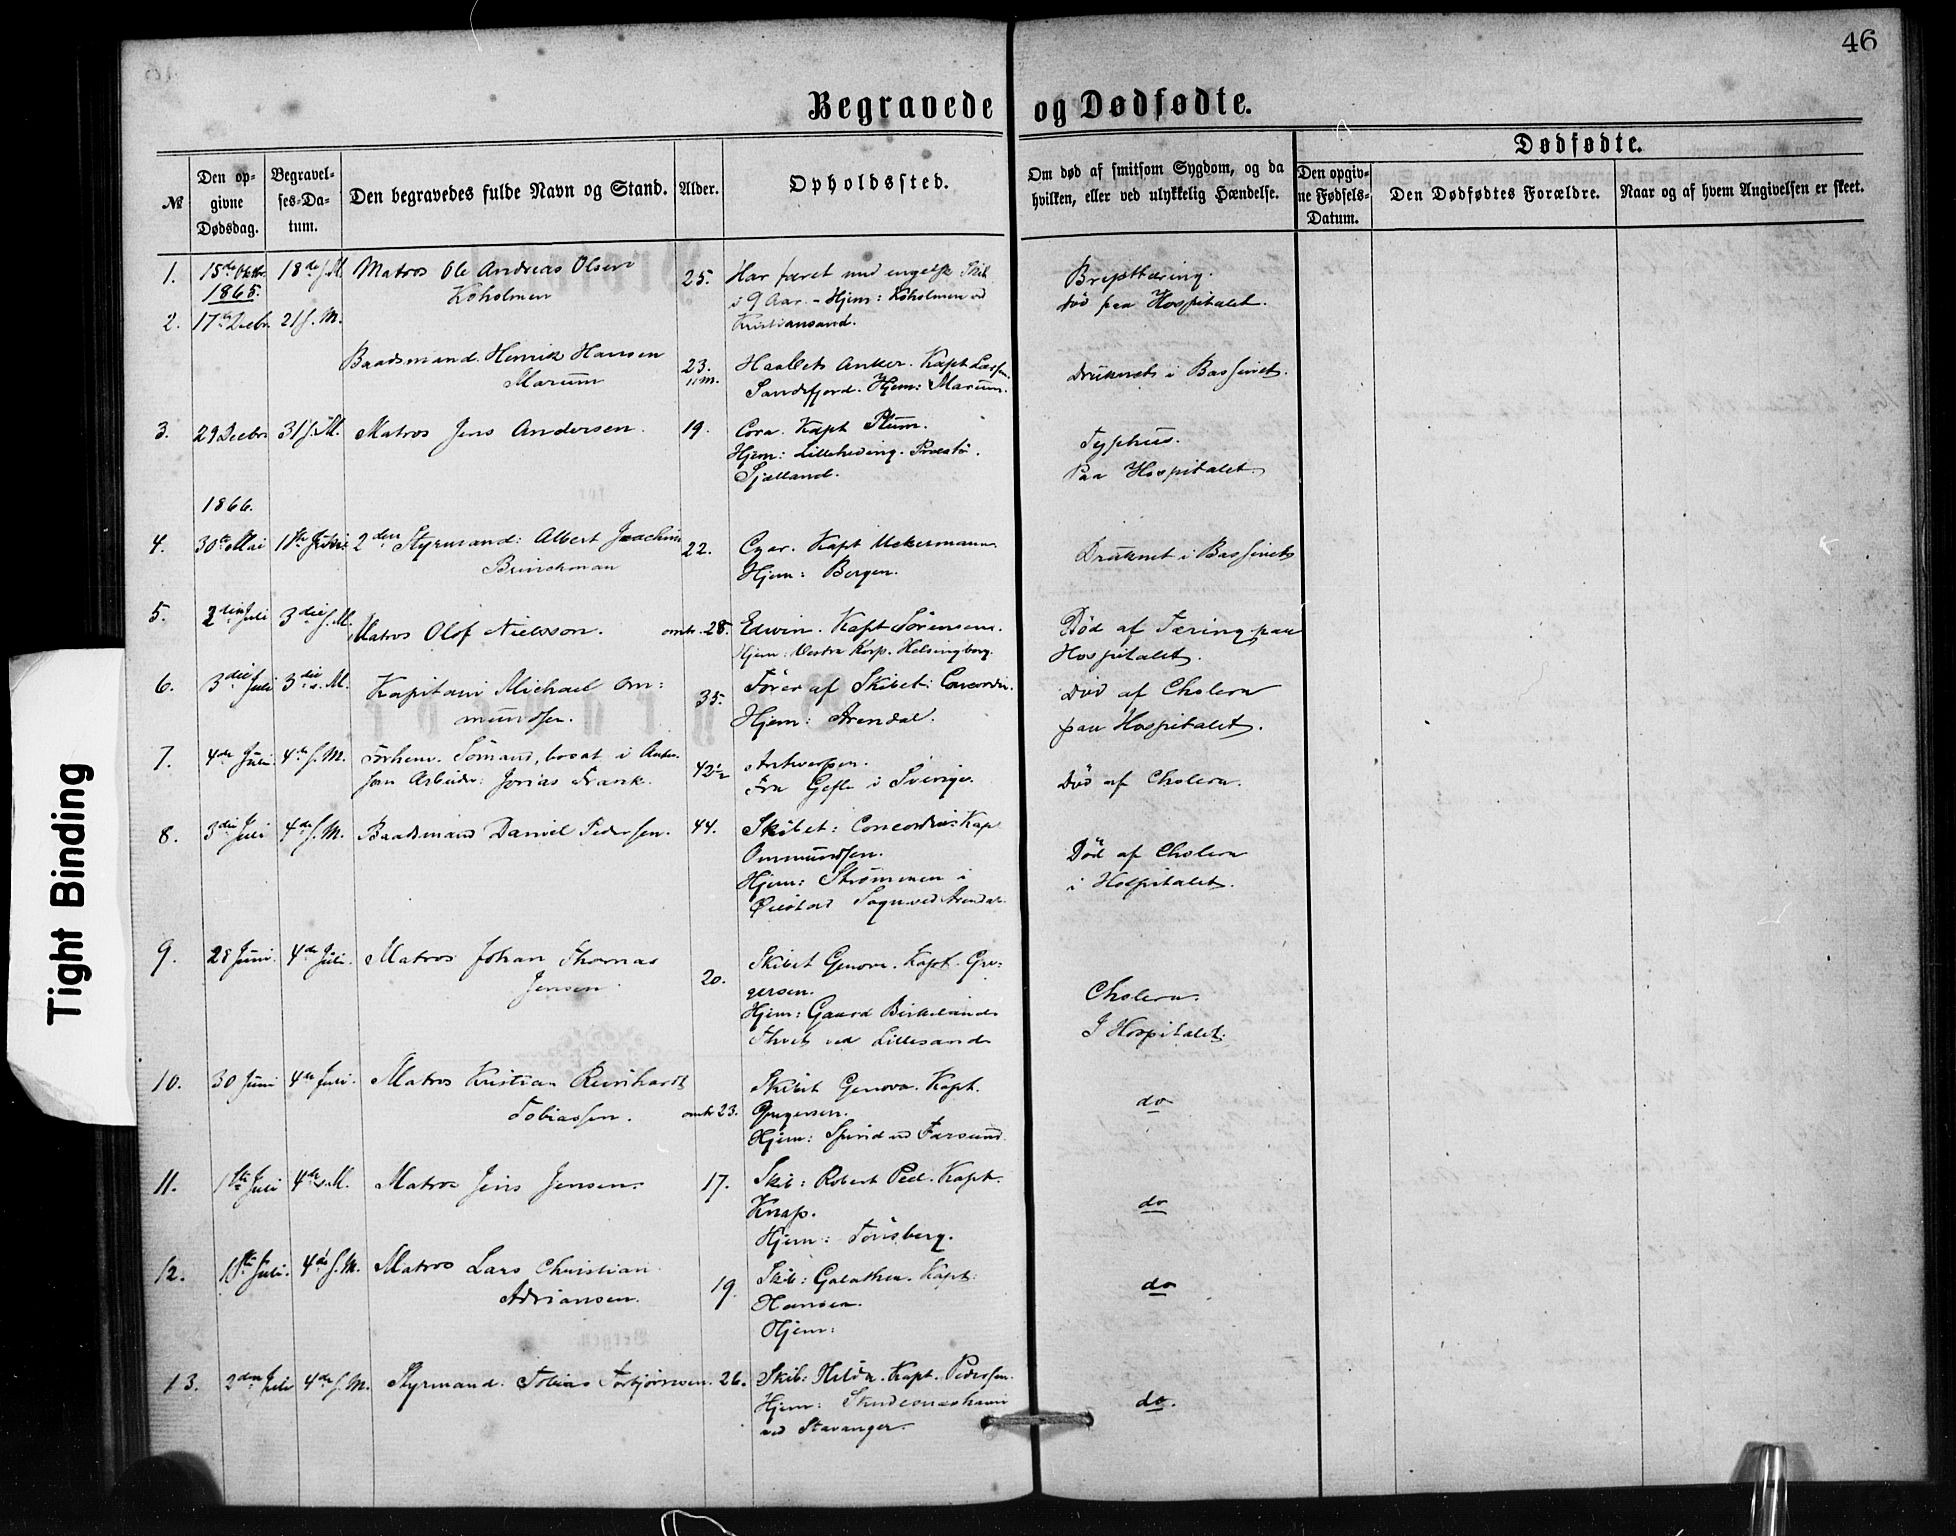 46
Begravede og Dødfødte.
№
Den opgivne Dødsdag.
Begravelses-Datum.
Den begravedes fulde Navn og Stand.
Alder.
Opholdssted.
Om død af smitsom Sygdom, og da hvilken, eller ved ulykkelig Hændelse.
Dødfødte.
Den opgivne Fødsels-Datum.
Den Dødfødtes Forældre.
Naar og af hvem Angivelsen er skeet.
1. 15de Oktbr 1865. 18de s. M. Matros Ole Andreas Olsen
Koholmen
25. Har faret med engelsk Skib
i 9 Aar. – Hjem: Koholmen ved
Kristiansand.
Brysttæring.
død paa Hospitalet.
2. 17de Decbr 21 s. M.
Baadsmand. Henrik Hansen
Marum
23.
11 M.
Haabets Anker. Kapt
Sandefjord. Hjem: Marum.
Druknet i Bassinet.
3. 29 Decbr 31 s. M. Matros Jens Andersen. 19. Cora. Kapt
Hjem: Lilleheding. Præstø.
Sjælland.
Typhus.
Paa Hospitalet.
1866.
4. 30te Mai 1ste Juni 2den Styrmand: Albert Joachim
Brinckman
22. Cyar. Kapt
Hjem: Bergen.
Druknet i Bassinet
5. 2den Juli 3die s. M. Matros Olof Nielsson. omtr. 28. Edwin. Kapt Sörensen.
Hjem: Vestra Karp. Helsingborg.
Död af Tæring paa
Hospitalet.
6. 3die Juli 3die s. M. Kapitain Michael Om=
mundsen.
35. Förer af Skibet: Concordia.
Hjem: Arendal.
Död af Cholera
paa Hospitalet.
7. 4de Juli 4de s. M. Forhenv. Sömand, bosat i Antw.
som Arbeider: Jonas Frank.
42½ Antwerpen.
Fra Gefle i Sverige.
Död af Cholera.
8. 3die Juli 4de s. M. Baadsmand Daniel Pedersen. 44. Skibet: Concordia: Kap
Ommundsen.
Hjem: Strömmen i
Öiestad Sogn ved Arendal.
Död af Cholera
i Hospitalet.
9. 28 Juni. 4de Juli. Matros Johan Thomas
Jensen.
20. Skibet Genova. Kapt. Gre=
gersen.
Hjem: Gaard Birkeland
ved Lillesand
Cholera.
I Hospitalet.
10. 30 Juni 4de Juli. Matros Kristian Reinhardt
Tobiassen.
omtr 23. Skibet Genova. Kapt.
Gregersen.
Hjem: Spind ved Farsund.
do
11. 1ste Juli 4de s. M. Matros Jens Jensen. 17. Skib: Robert Peel. Kapt.
Knap.
Hjem: Tönsberg.
do
12. 1ste Juli. 4de s. M. Matros Lars Christian
Adriansen.
19. Skib: Galathea. Kapt:
Hansen.
Hjem:
do
13. 2den Juli 4de s. M. Styrmand: Tobias Torbjörnsen. 26. Skib: Hilda. Kapt. Pedersen.
Hjem: Skudesneshavn
ved Stavanger.
do.
Tight Binding